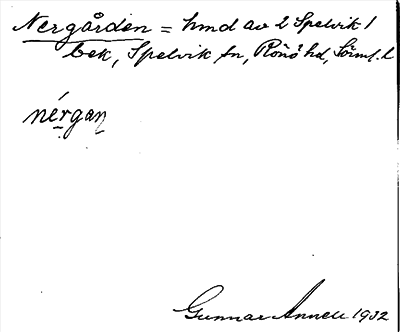 Nergården = hmd av 2 Spelvik 1
bek, Spelvik sn, Rönö hd, Sörml. l
nérgaṇ
Gunnar Annell 1932